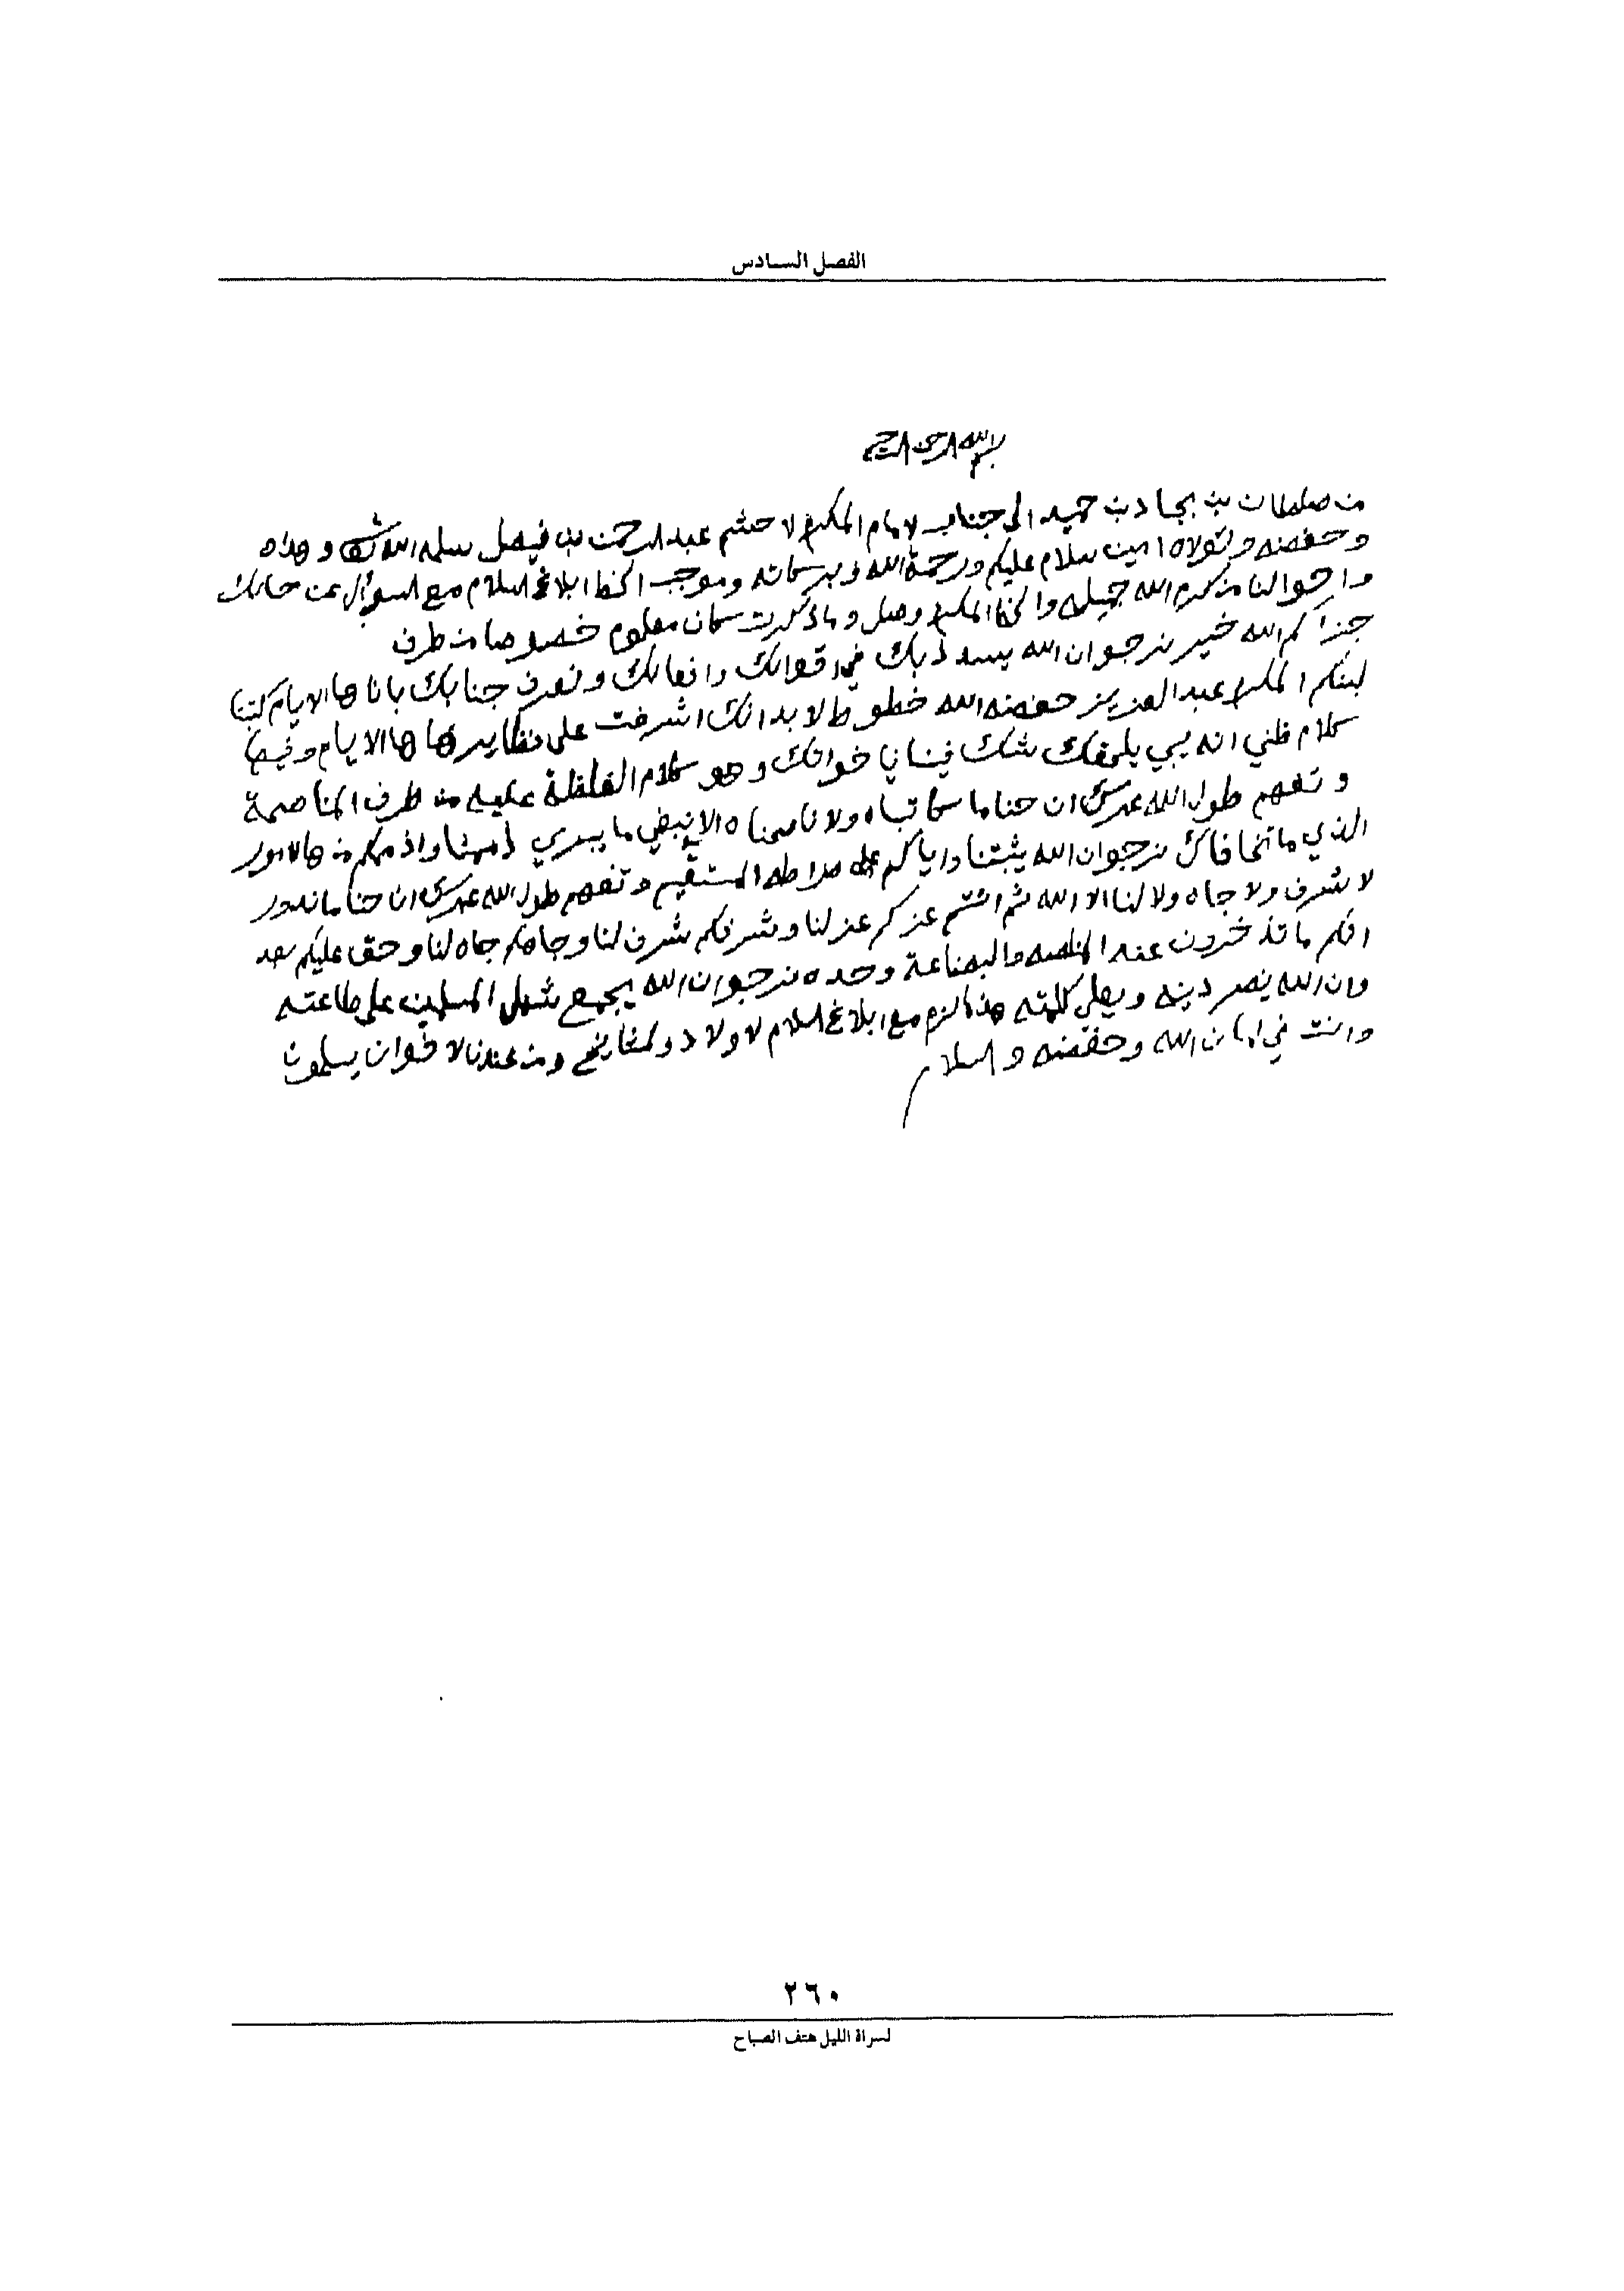 الفصل السادس
بسم الله الرحمن الرحيم
من صلطان بن بجاد بن حميد الى جناب لامام المكرم لاحشم عبد الرحمن بن فيصل سلمه الله تعالى وهداه
وحفضه وتولاه امين سلام عليكم ورحمة الله وبركاته وموجب الخط ابلاغ السلام مع السوأل عن حالك
واحوالنا من كرم الله جميله والخط المكرم وصل وماذكرت كان معلوم خصوصا من طرف
جزاكم الله خير نرجوا ن الله يسدد بك في اقوالك وافعالك ونعرف جنابك بانا هالايام كتبنا
لبنكم المكرم عبد العزيز حفضه الله خطوط لابد انك اشرفت على نظايرها هالايام وفيها
كلام ظني انه يبي يلحقك شك فينا يا خوانك وهو كلام الغلظة عليه من طرف المناصحة
و تفهم طول الله عمرك ان حنا ما كاتبناه ولا ناصحناه الا نبغي ما يبري ذمتنا واذمكم من هالامور
الذي ماتخافاك نرجوا ن الله يثبتنا واياكم على صراطه المستقيم وتفهم طول الله عمرك ان حنا ماندور
لا شرف ولا جاه ولا لنا الا الله ثم انتم عزكم عز لنا وشرفكم شرف لنا وجاهكم جاه لنا وحق عليكم بعد
انكم ما تذخرون عنه المناصحه والبضاعة وحده نرجوا ن الله يجمع شمل المسلمين على طاعته
وان الله ينصر دينه ويعلي كلمته هذا مالزم مع ابلاغ السلام لاولاد والمشايخ ومن عندنا لاخوان يسلمون
وانت في امان الله وحفضه والسلام
٢٦٠
لسراة الليل هتف الصباح